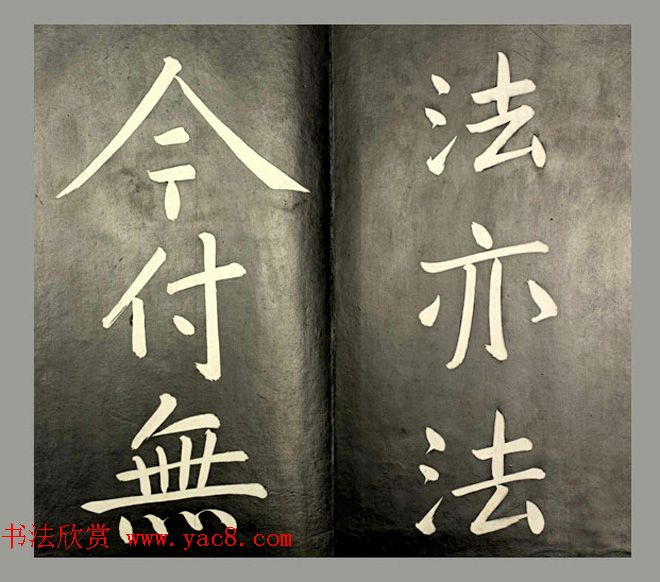 法亦法
今付無
书法欣赏 www.yac8.com